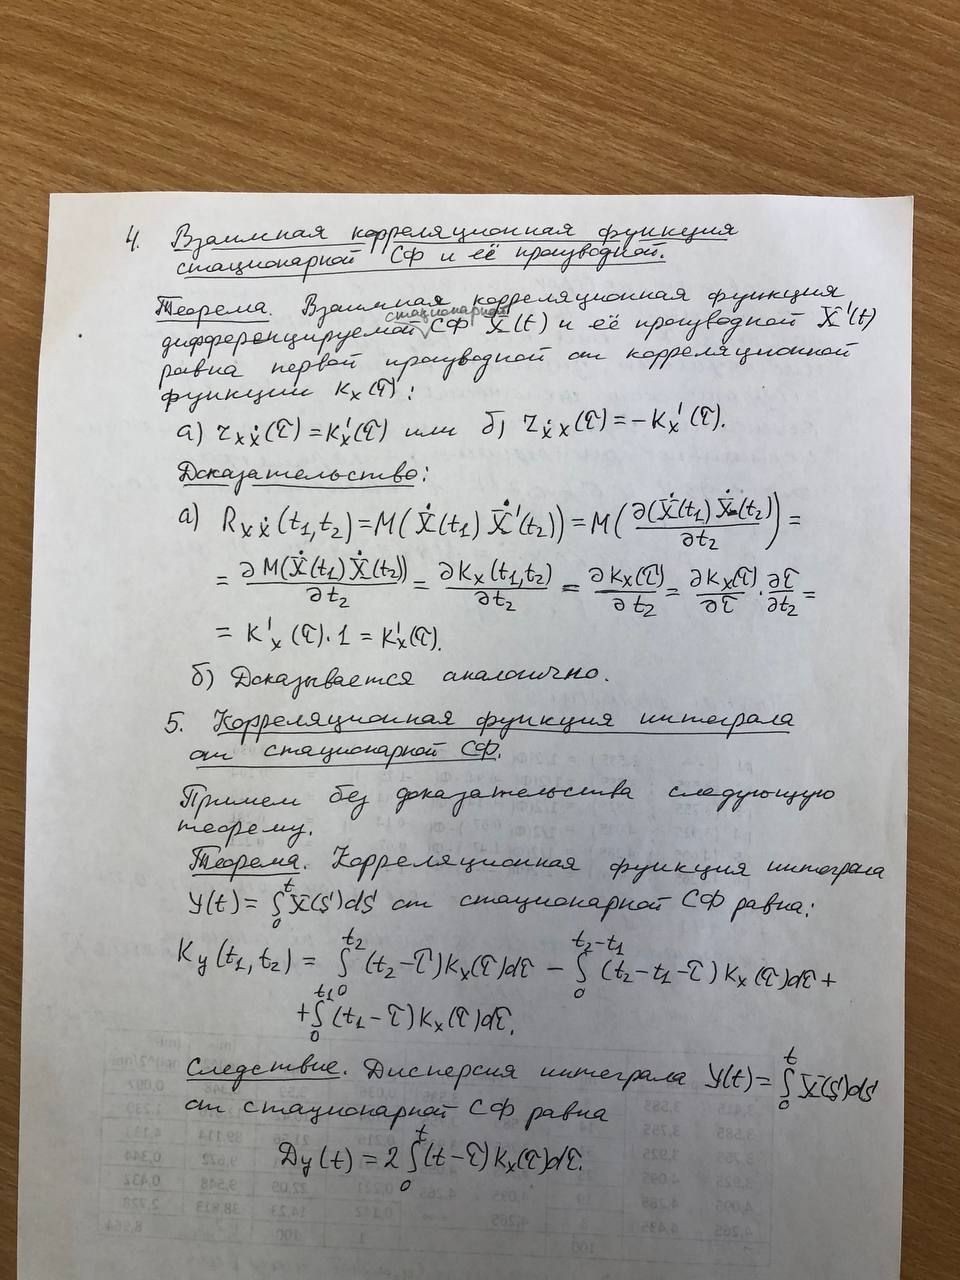 4. Взаимная корреляционная функция
стационарной СФ и её производной.
Теорема. Взаимная корреляционная функция
стационарной
дифференцируемой СФ X(t) и её производной X'(t)
равна первой производной от корреляционной
функции kx(τ):
а) rxẋ(τ)=k'x(τ) или б) rẋx(τ)=-k'x(τ).
Доказательство:
а) Rxẋ(t₁,t₂)=M(Ẋ(t₁)Ẋ'(t₂))=M(∂(Ẋ(t₁)Ẋ(t₂))/∂t₂)=
= ∂M(Ẋ(t₁)Ẋ(t₂))/∂t₂ = ∂Kx(t₁,t₂)/∂t₂ = ∂kx(τ)/∂t₂ = ∂kx(τ)/∂τ · ∂τ/∂t₂ =
= k'x(τ)·1 = k'x(τ).
б) Доказывается аналогично.
5. Корреляционная функция интеграла
от стационарной СФ.
Примем без доказательства следующую
теорему.
Теорема. Корреляционная функция интеграла
Y(t)=∫₀ᵗX(s)ds от стационарной СФ равна:
Ky(t₁,t₂)=∫₀^t₂(t₂-τ)kx(τ)dτ - ∫₀^(t₂-t₁)(t₂-t₁-τ)kx(τ)dτ+
+∫₀^t₁(t₁-τ)kx(τ)dτ.
Следствие. Дисперсия интеграла Y(t)=∫₀ᵗX(s)ds
от стационарной СФ равна
Dy(t)=2∫₀ᵗ(t-τ)kx(τ)dτ.